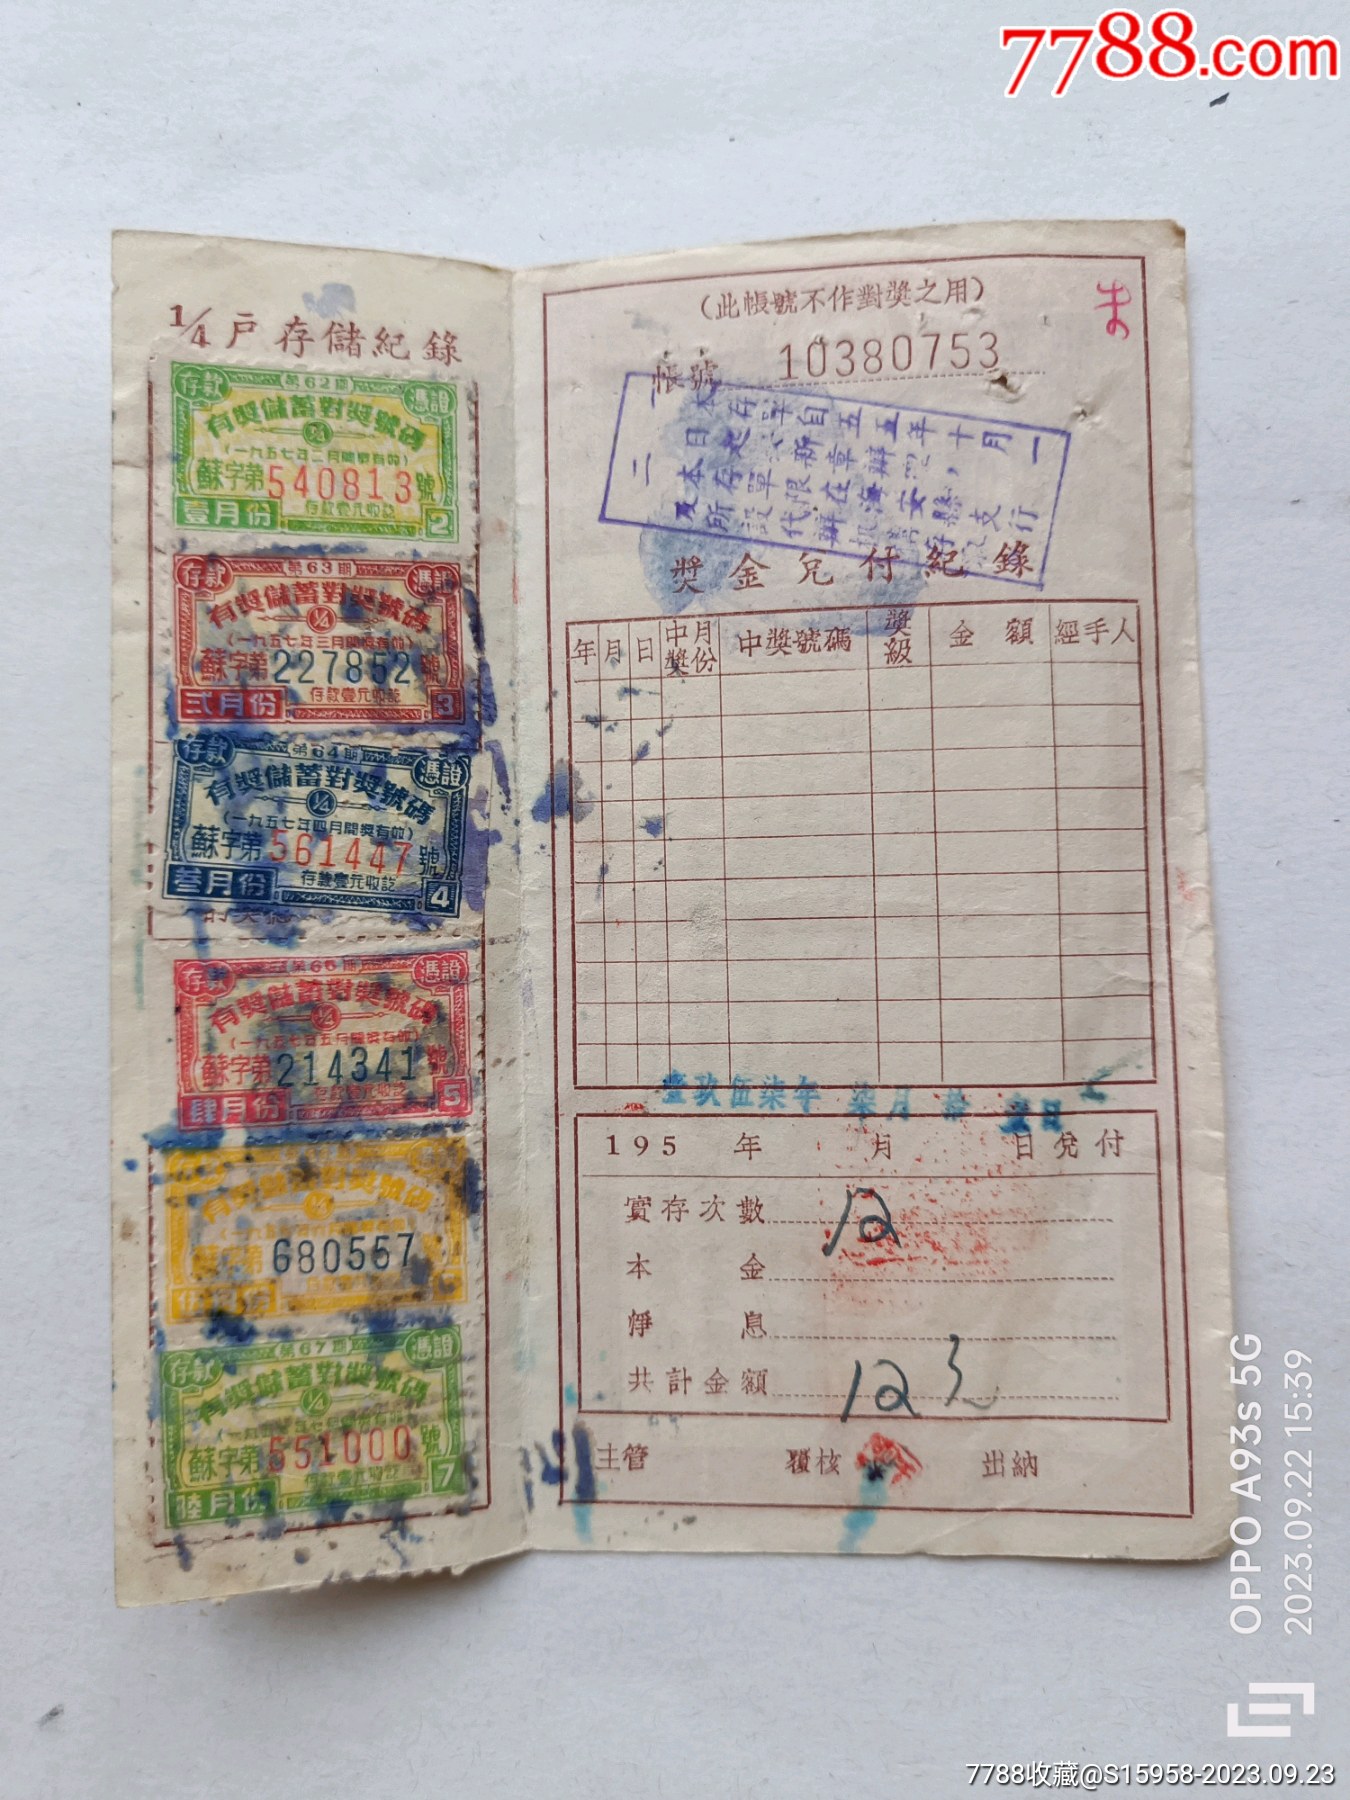 7788.com
1/4戶存儲紀錄
存款 第62期 憑證
有獎儲蓄對獎號碼
1/4
(一九五七年二月開獎有效)
蘇字第540813號
存款壹元收訖
壹月份 2
存款 第63期 憑證
有獎儲蓄對獎號碼
1/4
(一九五七年三月開獎有效)
蘇字第227852號
存款壹元收訖
弍月份 3
存款 第64期 憑證
有獎儲蓄對獎號碼
1/4
(一九五七年四月開獎有效)
蘇字第561447號
存款壹元收訖
叁月份 4
存款 第65期 憑證
有獎儲蓄對獎號碼
1/4
(一九五七年五月開獎有效)
蘇字第214341號
存款壹元收訖
肆月份 5
有獎儲蓄對獎號碼
1/4
蘇字第680557
存款 第67期 憑證
有獎儲蓄對獎號碼
1/4
蘇字第551000號
存款壹元收訖
陸月份 7
(此帳號不作對獎之用)
帳號 10380753
獎金兌付紀錄
年 月 日 中獎月份 中獎號碼 獎級 金額 經手人
壹玖伍柒年 柒月 拾 壹日
195 年 月 日兌付
實存次數 12
本金
淨息
共計金額 12
主管 覆核 出納
OPPO A93s 5G
2023.09.22 15:39
7788收藏@S15958-2023.09.23